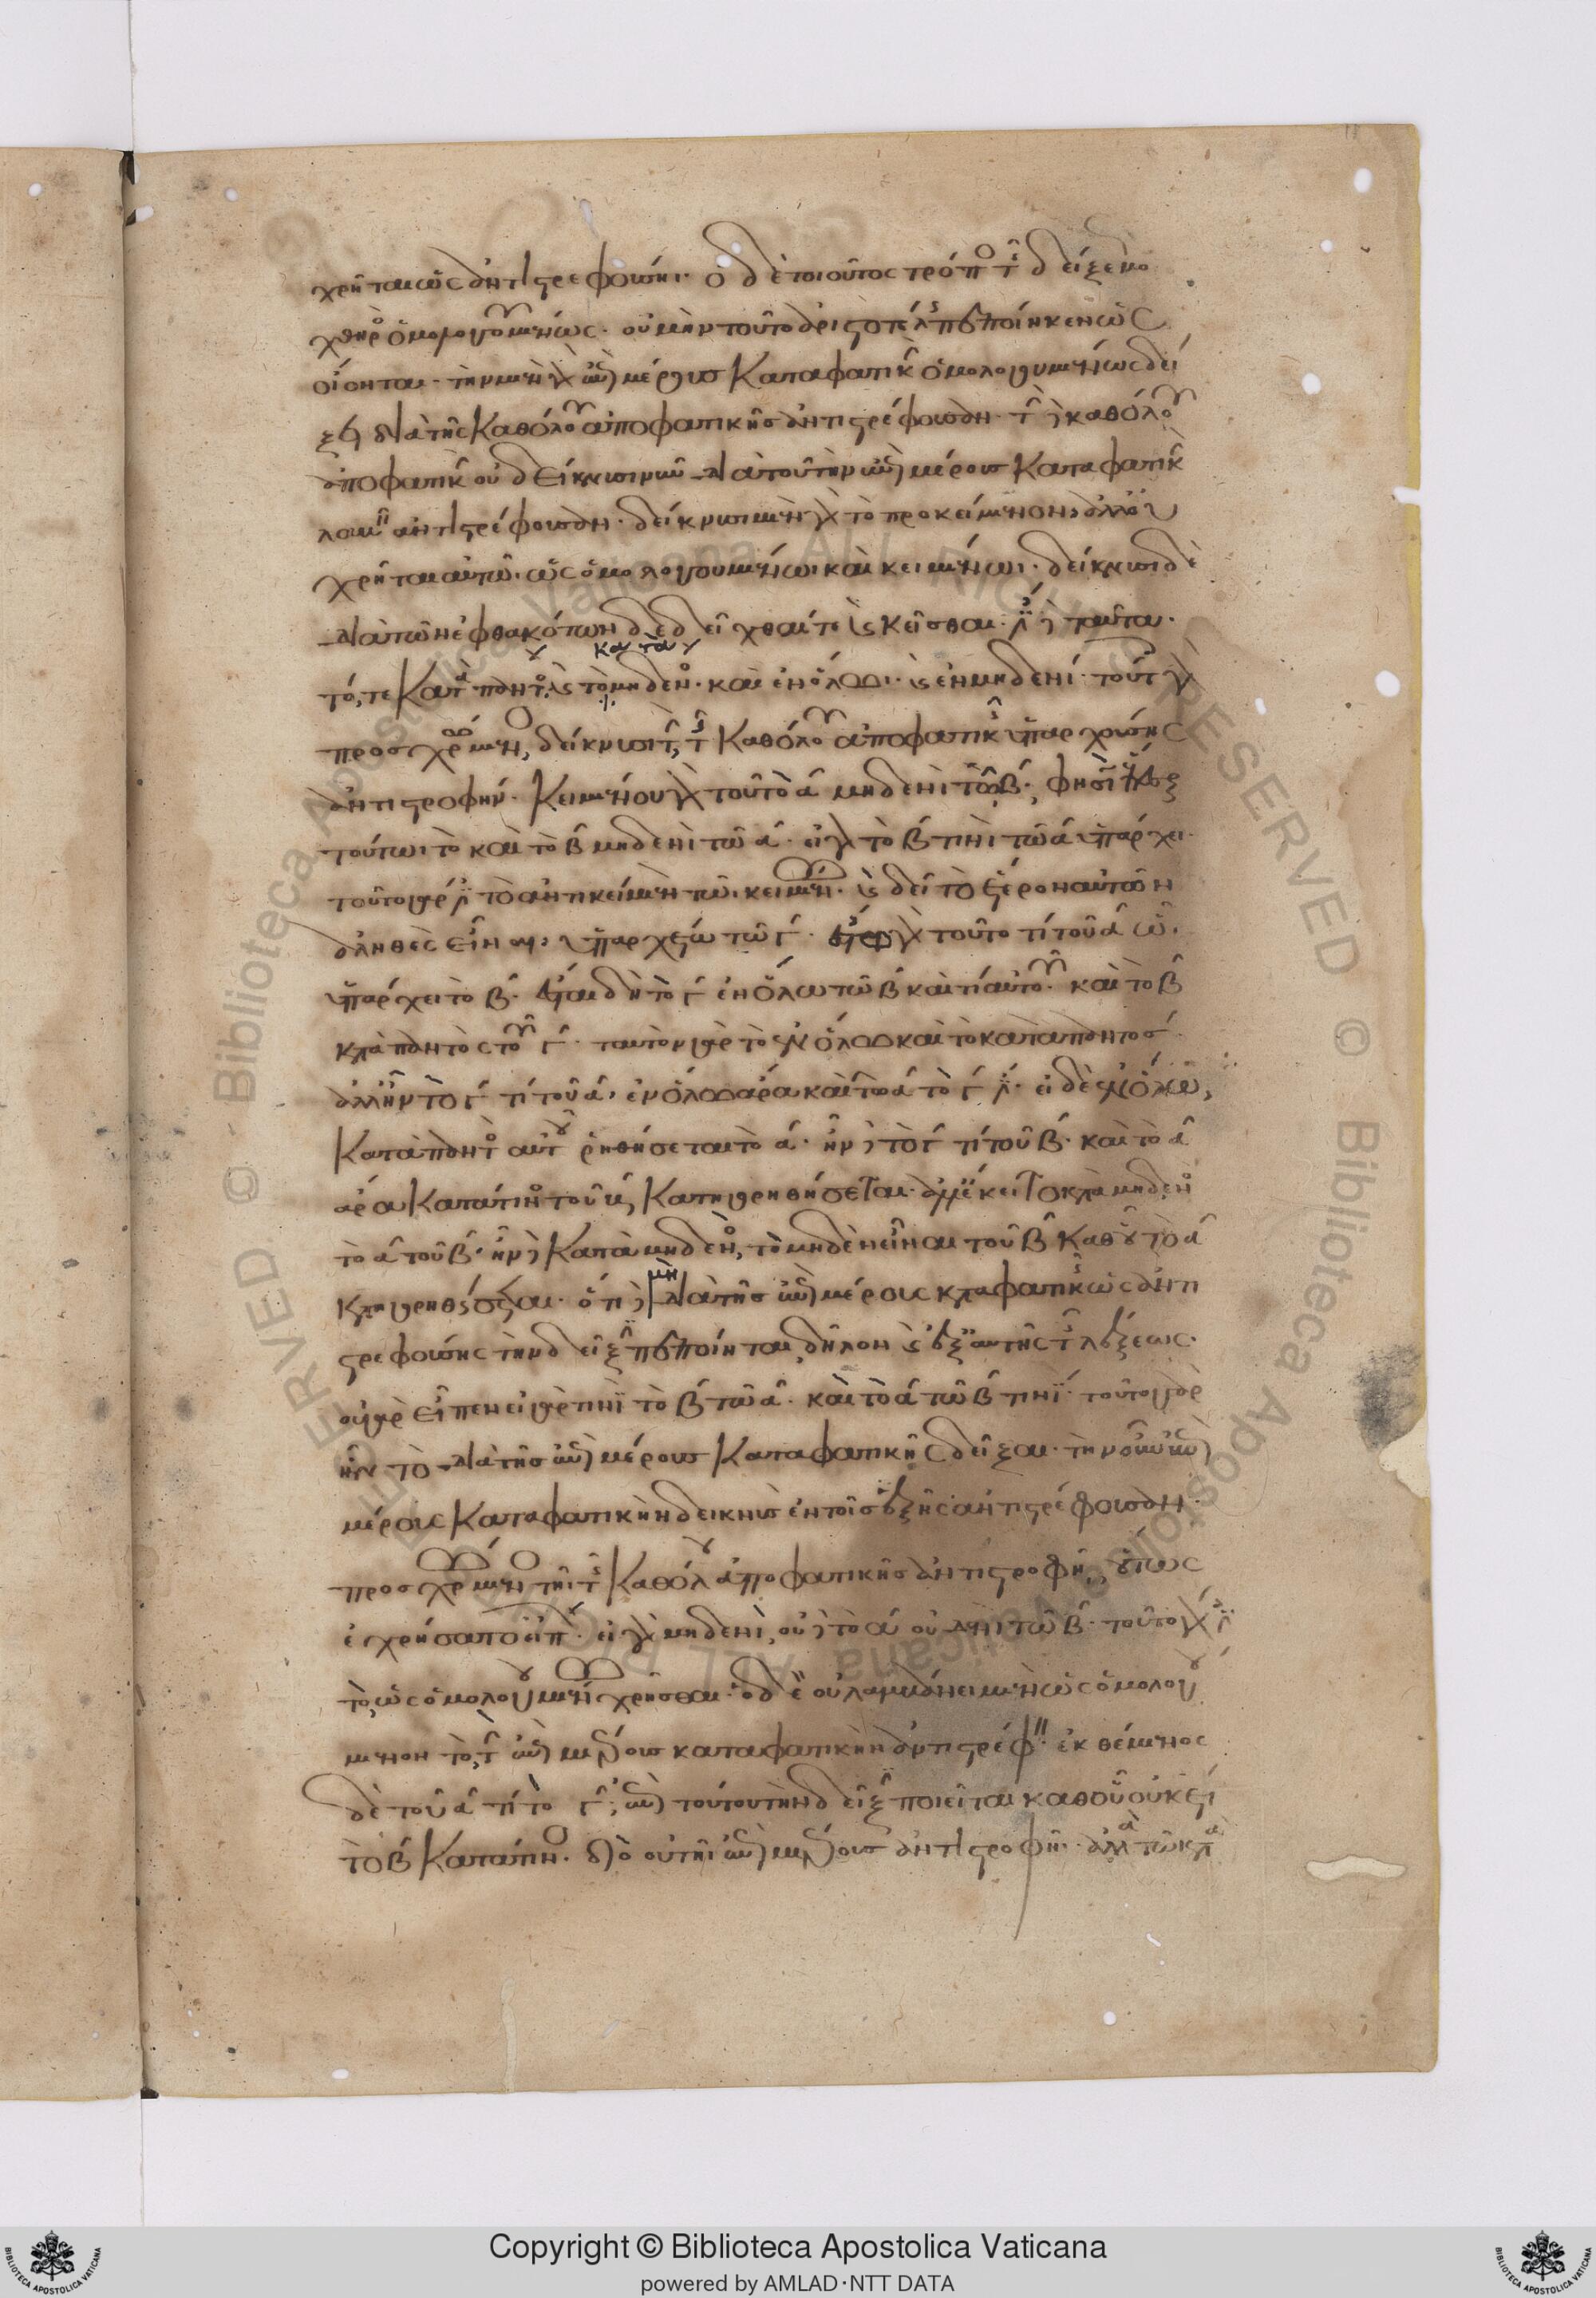 χρῆται ὡς ἀντιστρεφούσηι· ὁ δὲ τοιοῦτος τρόπο τ δείξεως
οὐ μὴν τοῦτο ἀριστοτέλ πεποίηκεν ὡς
οἴονται· τὴν μὲν γὰρ ἐπὶ μέρους καταφατικ ὁμολογουμένως δεί
ξει διὰ τῆς καθόλου ἀποφατικῆς ἀντιστρέφουσαν· τ δὲ καθόλου
ἀποφατικ οὐ δείκνυσιν νῦν διὰ τοῦ τὴν ἐπὶ μέρους καταφατικ
λαμ ἀντιστρέφουσαν· δείκνυσι μὲν γὰρ τὸ προκείμενον, ἀλλ οὐ
χρῆται αὐτῶι ὡς ὁμολογουμένωι καὶ κειμένωι· δείκνυσι δὲ
διὰ τῶν ἐφθακότων δεδεῖχθαί τε καὶ κεῖσθαι· ταῦτα·
τό, τε κατὰ παντ καὶ τὸ κατὰ μηδεν· καὶ ἐν ὅλωι· καὶ ἐν μηδενί· τούτ γὰρ
προσχρ δείκνυσι τ καθόλου ἀποφατικ ὑπαρχούσης
ἀντιστροφήν· κειμένου γὰρ τοῦ τὸ α μηδενὶ τῶ β· φησὶ
τούτωι τὸ καὶ τὸ β μηδενὶ τῶ α· εἰ γὰρ τὸ β τινὶ τῶ α ὑπάρχει·
τοῦτο γὰρ τὸ ἀντικείμεν τῶι κειμεν· καὶ δεῖ τὸ ἕτερον αὐτῶν
ἀληθὲς εἶναι, ὑπαρχέτω τῶ γ· γὰρ τοῦτο τί τοῦ α ὧ
ὑπάρχει τὸ β· ἔσται δὴ τὸ γ ἐν ὅλω τῶ β καὶ τί αὐτοῦ· καὶ τὸ β
κατὰ παντὸς τοῦ γ· ταυτὸν γὰρ τὸ ἐν ὅλωι καὶ τὸ κατὰ παντός·
ἀλλ ἦν τὸ γ τί τοῦ α, ἐν ὅλωι ἄρα καὶ τῶ α τὸ γ· εἰ δὲ ἐν ὅλω,
κατὰ παντ αὐτου ῥηθήσεται τὸ α· ἦν δὲ τὸ γ τί τοῦ β· καὶ τὸ α
ἄρα κατά τιν τοῦ β κατηγορηθήσεται· ἀλλ ἔκειτο κατὰ μηδεν
τὸ α τοῦ β· ἦν δὲ κατὰ μηδεν, τὸ μηδὲν εἶναι τοῦ β καθ οὗ τὸ α
κατηγορηθήσεται· ὅτι δὲ μὴ διὰ τῆς ἐπὶ μέρους καταφατικ ὡς ἀντι
στρεφούσης τὴν δεῖξ πεποίηται, δῆλον καὶ ἐξ αὐτῆς τ λέξεως·
οὐ γὰρ εἶπεν εἰ γὰρ τινὶ τὸ β τῶ α· καὶ τὸ α τῶ β τινί· τοῦτο γὰρ
ἦν τὸ διὰ τῆς ἐπὶ μέρους καταφατικῆς δεῖξαι· τὴν ἐπὶ
μέρους καταφατικὴν δεικνὺς ἐν τοῖς ἑξῆς ἀντιστρέφουσαν·
προσχρ τῆι τ καθόλου ἀποφατικῆς ἀντιστροφῆ, οὕτως
ἐχρήσατο εἰπ· εἰ γὰρ μηδενὶ, οὐδὲ τὸ α οὐδενὶ τῶ β· τοῦτο γὰρ
τὸ, ὡς ὁμολογουμεν χρῆσθαι· ὁ δ οὐ λαμβάνει μὲν ὡς ὁμολογού
μενον τὸ, τ ἐπὶ μέρους καταφατικὴν ἀντιστρέφ· ἐκθέμενος
δὲ τοῦ α τί τὸ γ, ἐπὶ τούτου τὴν δεῖξ ποιεῖται καθ οὗ οὐκέτι
τὸ β κατά τιν· διὸ οὐ τῆι ἐπὶ μέρους ἀντιστροφῆ· ἀλλὰ τῶ κατὰ
Copyright © Biblioteca Apostolica Vaticana
powered by AMLAD·NTT DATA